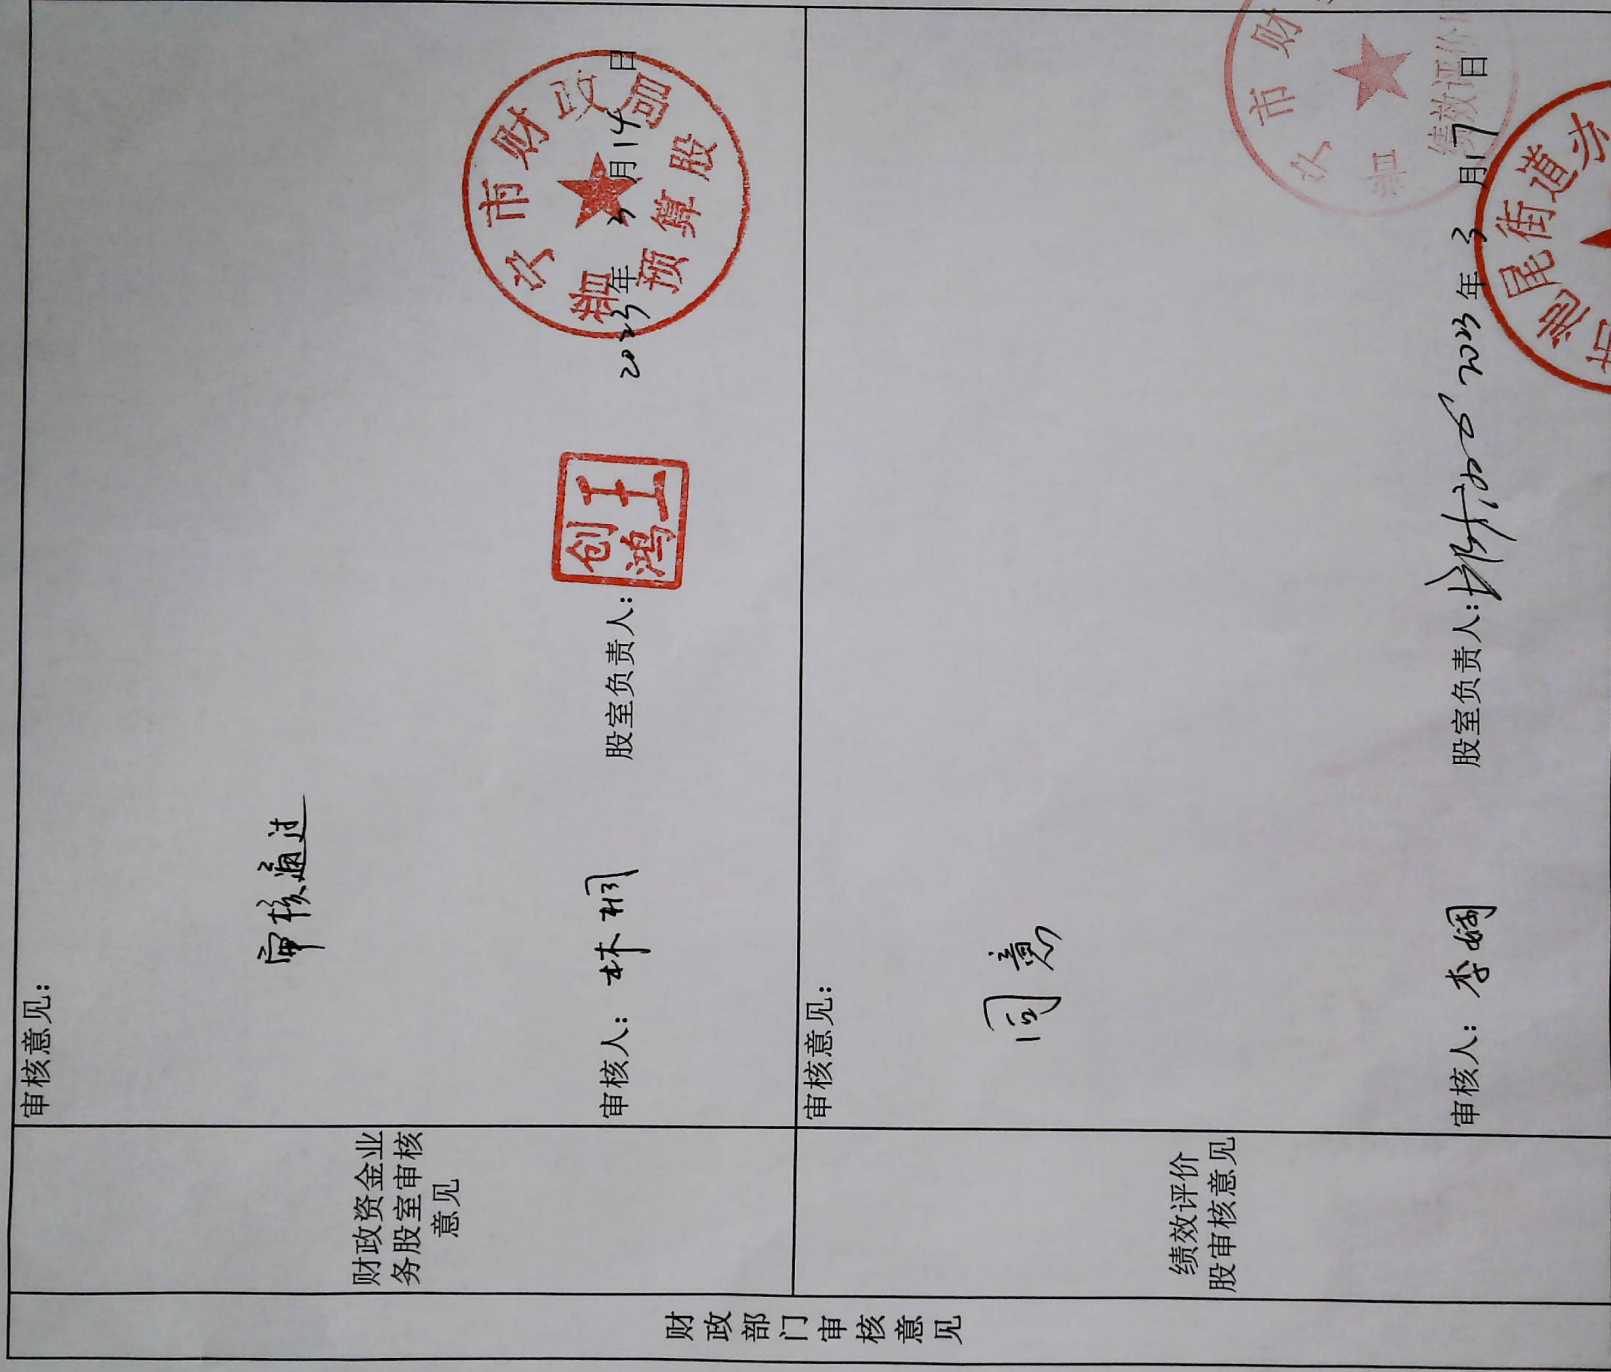 财政部门审核意见
财政资金业
务股室审核
意见
审核意见：
审核通过
审核人：林桐 股室负责人：
王鸿创
2023年3月14日
市财政局
预算股
绩效评价
股审核意见
审核意见：
同意
审核人：李娴 股室负责人：
2023年3月17日
市财
绩效评价
池尾街道办